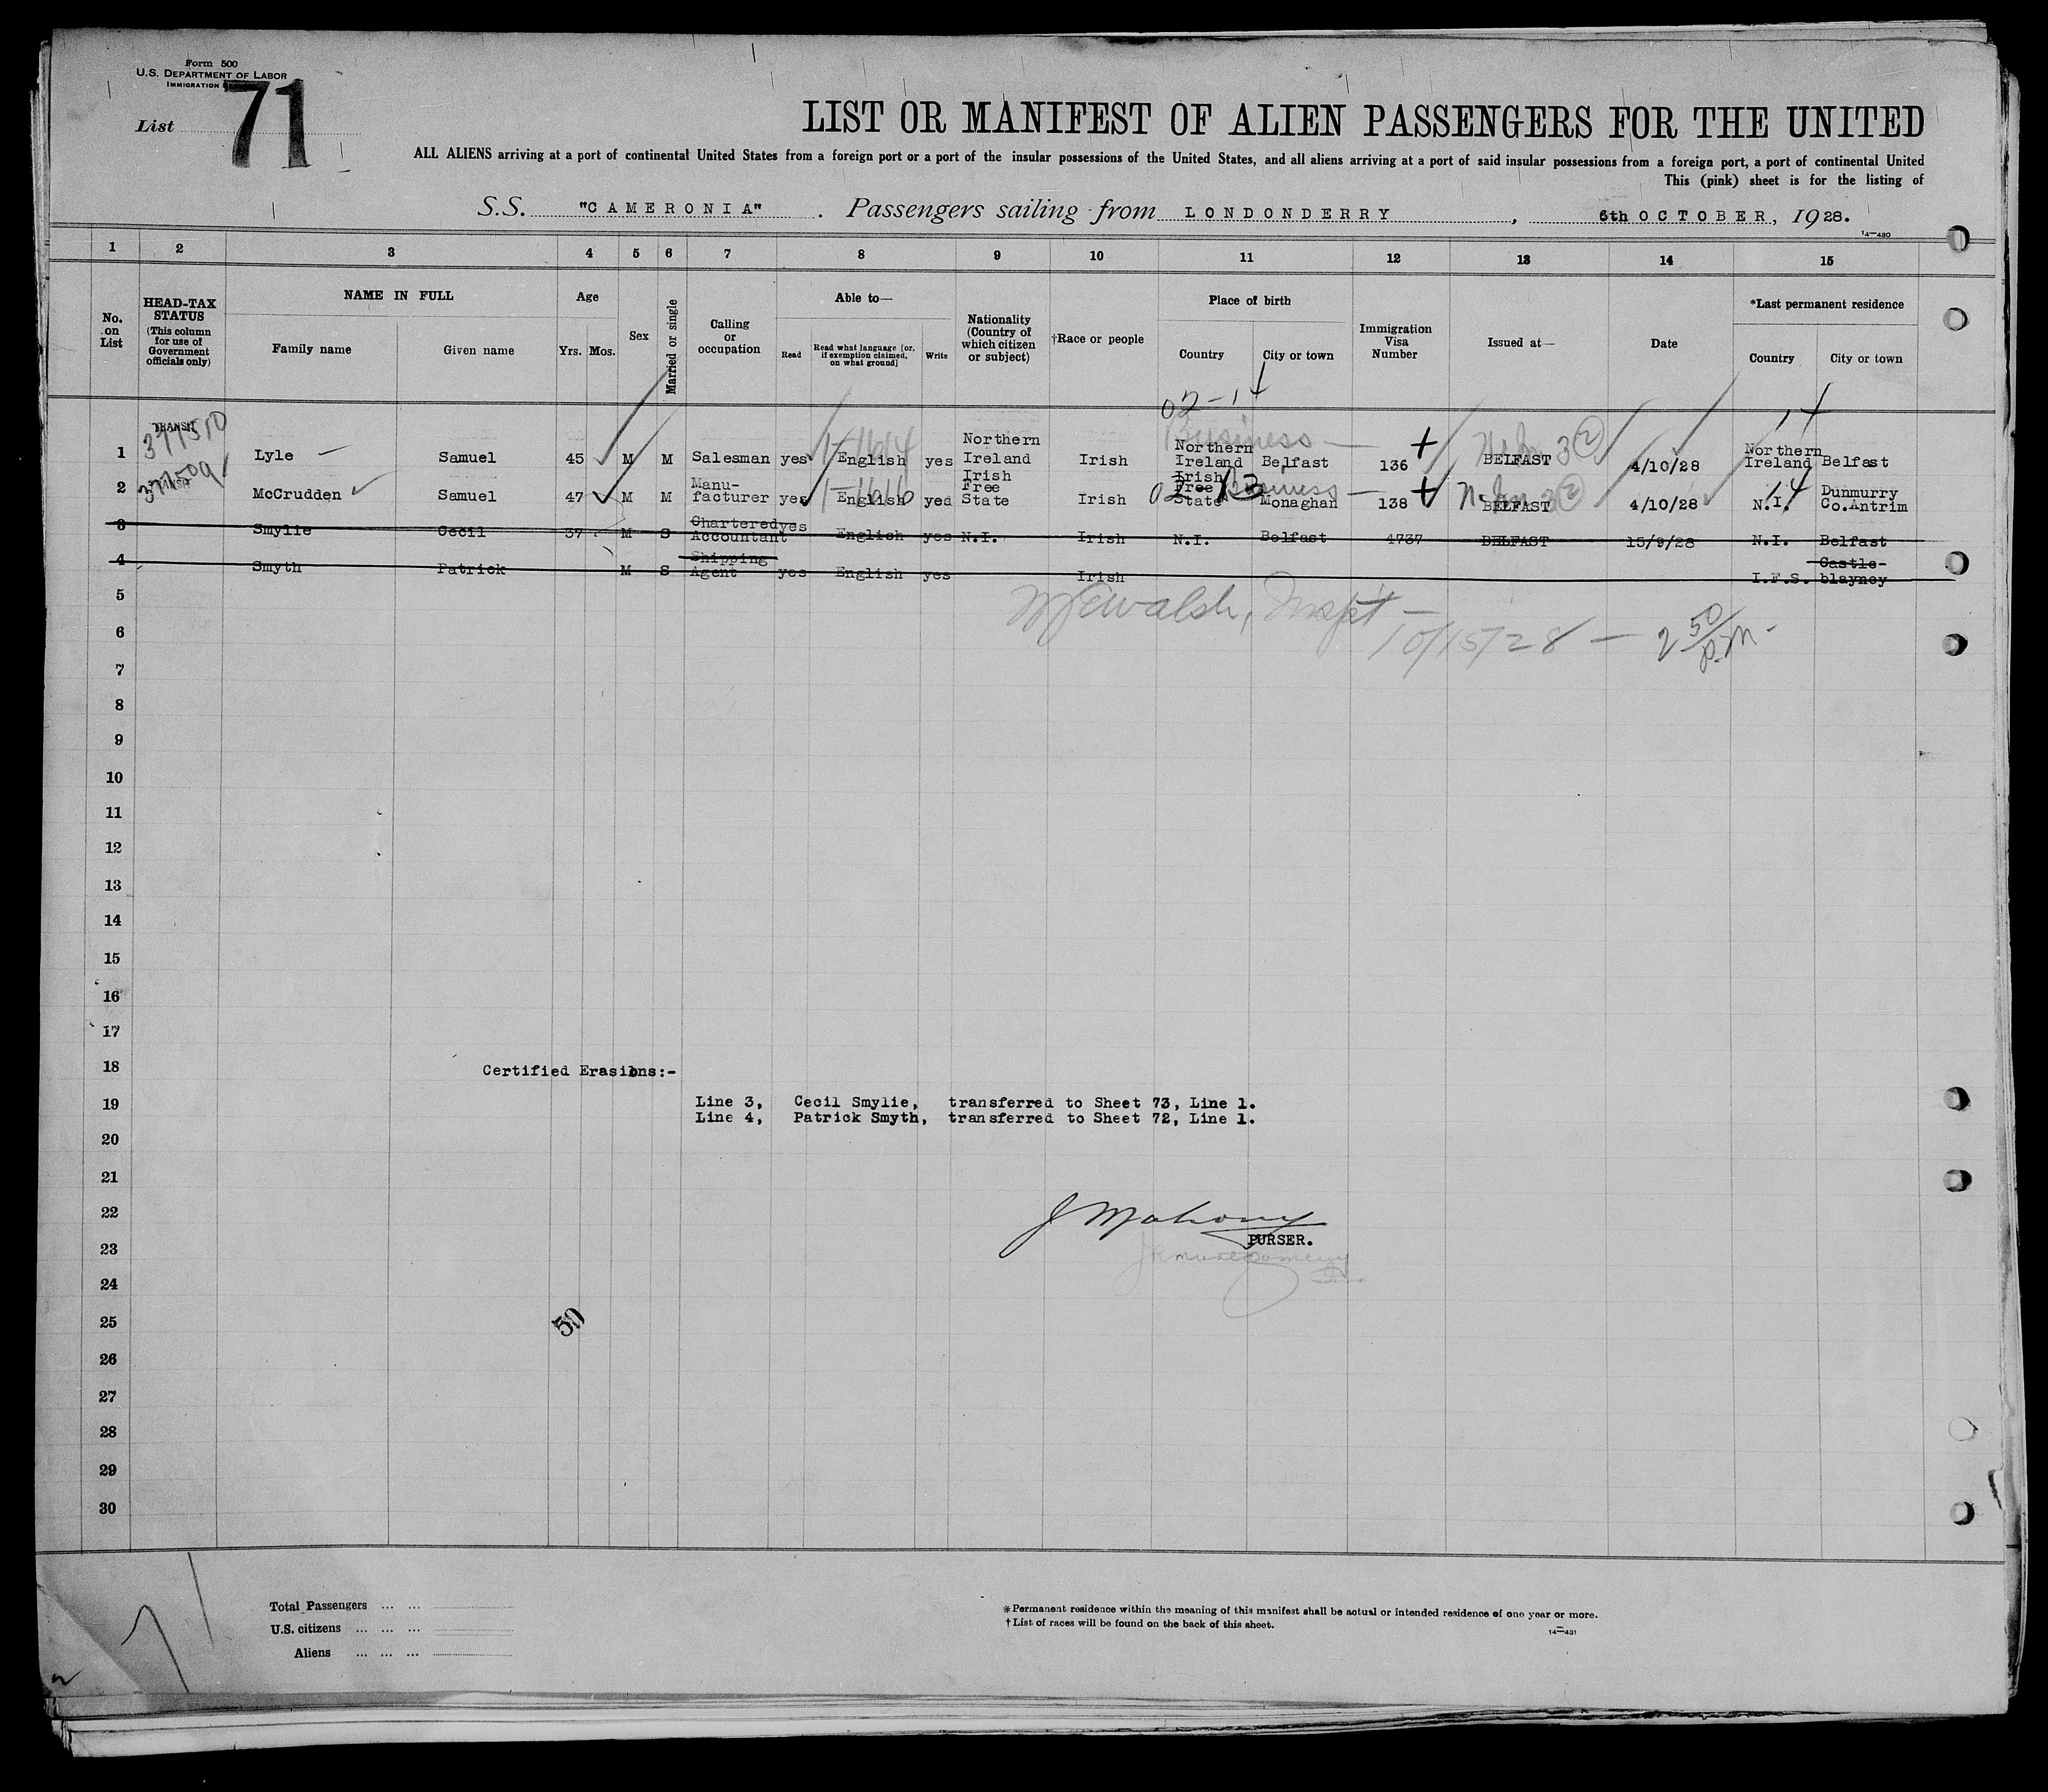 Form 500
U.S. DEPARTMENT OF LABOR
IMMIGRATION
List 71
LIST OR MANIFEST OF ALIEN PASSENGERS FOR THE UNITED
ALL ALIENS arriving at a port of continental United States from a foreign port or a port of the insular possessions of the United States, and all aliens arriving at a port of said insular possessions from a foreign port, a port of continental United
This (pink) sheet is for the listing of
S.S. "CAMERONIA". Passengers sailing from LONDONDERRY, 6th OCTOBER, 1928.
14—430
1 2 3 4 5 6 7 8 9 10 11 12 13 14 15
No. on List
HEAD-TAX STATUS
(This column for use of Government officials only)
NAME IN FULL
Family name Given name
Age
Yrs. Mos.
Sex
Married or single
Calling or occupation
Able to—
Read Read what language [or, if exemption claimed, on what ground] Write
Nationality (Country of which citizen or subject)
†Race or people
Place of birth
Country City or town
Immigration Visa Number
Issued at—
Date
*Last permanent residence
Country City or town
02-14 14
TRANSIT 377510 1-1614 Business — N. Im 3(2)
1 Lyle Samuel 45 M M Salesman yes English yes Northern Ireland Irish Northern Ireland Belfast 136 BELFAST 4/10/28 Northern Ireland Belfast
377509 1-1616 02-13 Business — N. Im 3(2) 14
2 McCrudden Samuel 47 M M Manu-facturer yes English yes Irish Free State Irish Irish Free State Monaghan 138 BELFAST 4/10/28 N.I. Dunmurry Co.Antrim
3 Smylie Cecil 37 M S Chartered Accountant yes English yes N.I. Irish N.I. Belfast 4737 BELFAST 15/9/28 N.I. Belfast
4 Smyth Patrick M S Shipping Agent yes English yes Irish I.F.S. Castle-blayney
5
Walsh, Inspt —
6
10/15/28 — 2 50/P.M.
7
8
9
10
11
12
13
14
15
16
17
18
Certified Erasions:-
19 Line 3, Cecil Smylie, transferred to Sheet 73, Line 1.
Line 4, Patrick Smyth, transferred to Sheet 72, Line 1.
20
21
22
J Mahony
23
PURSER.
24
25
50
26
27
28
29
30
71
Total Passengers ... ...
U.S. citizens ... ... ...
Aliens ... ... ...
*Permanent residence within the meaning of this manifest shall be actual or intended residence of one year or more.
†List of races will be found on the back of this sheet.
14—431